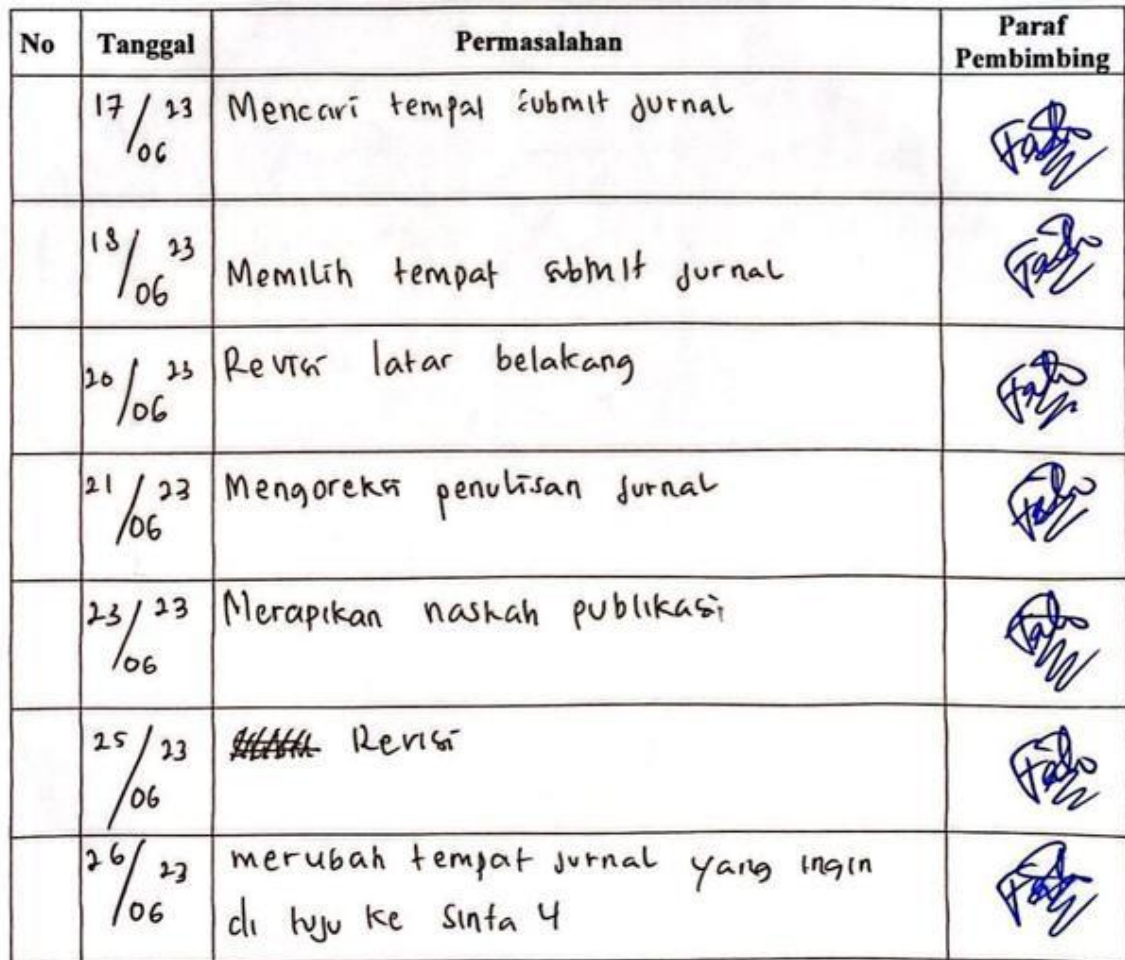 No Tanggal Permasalahan Paraf Pembimbing
17/06 23 Mencari tempat submit jurnal
18/06 23 Memilih tempat submit jurnal
20/06 23 Revisi latar belakang
21/06 23 Mengoreksi penulisan jurnal
23/06 23 Merapikan naskah publikasi
25/06 23 Revisi
26/06 23 merubah tempat jurnal yang ingin
di tuju ke Sinta 4